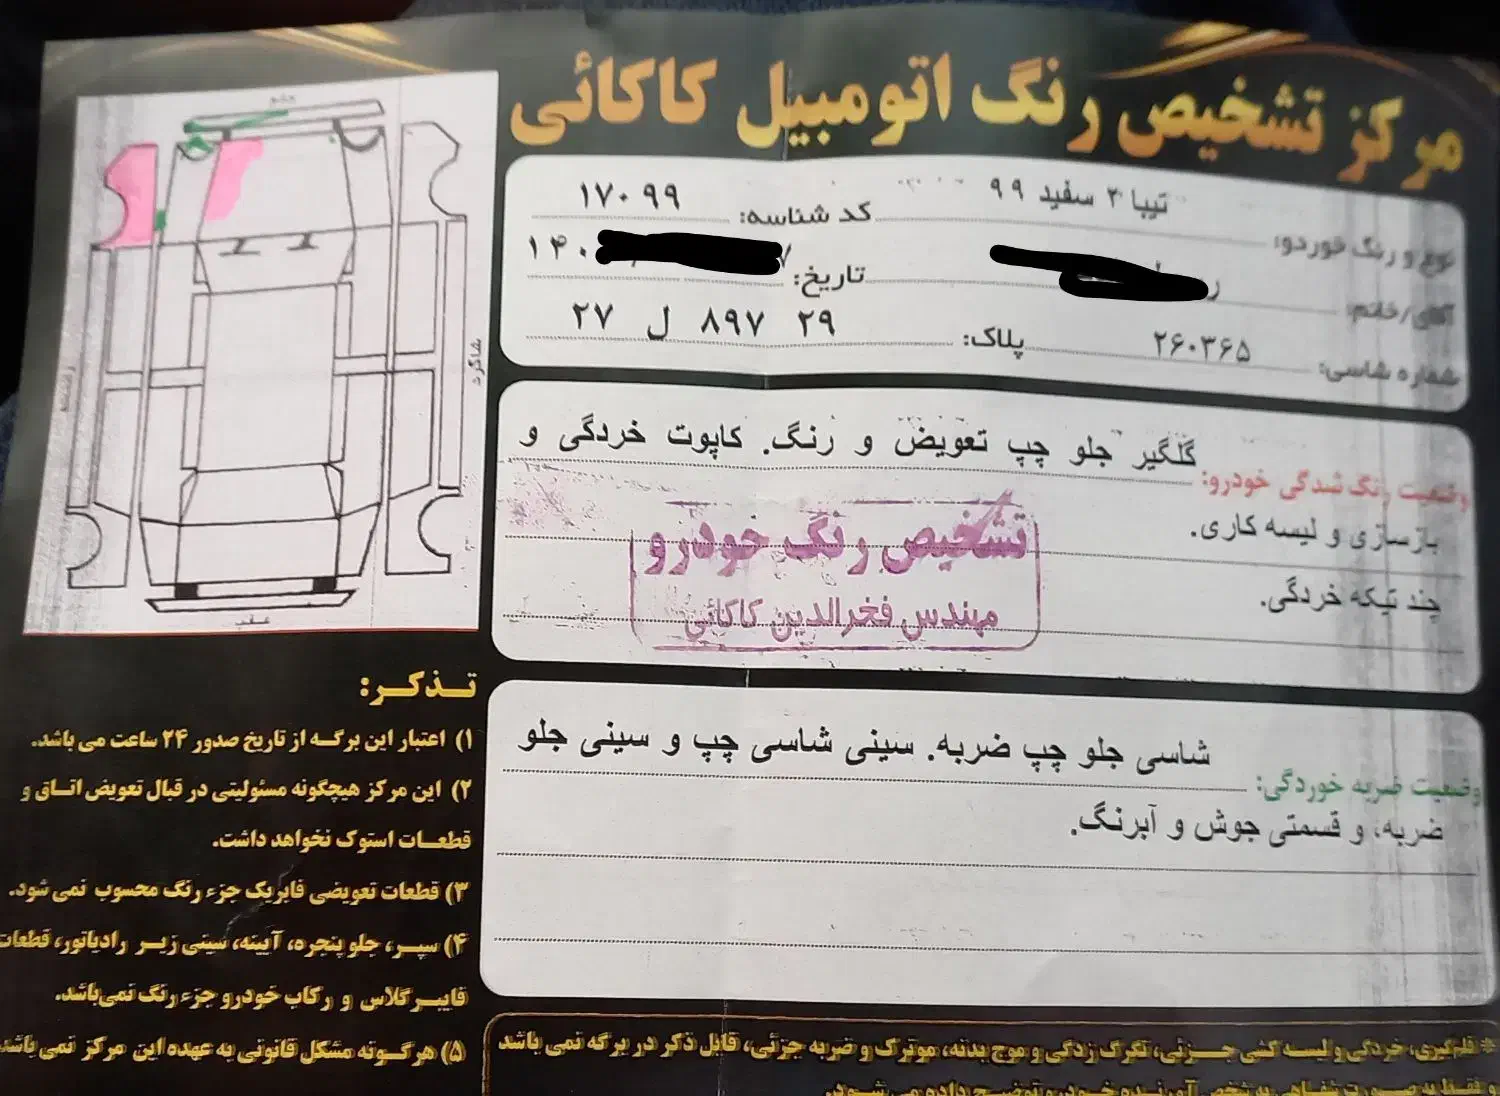 مرکز تشخیص رنگ اتومبیل کاکائی
نوع و رنگ خوردو: تیبا ۲ سفید ۹۹
کد شناسه: ۱۷۰۹۹
آقای/خانم:
تاریخ: ۱۴۰
شماره شاسی: ۲۶۰۳۶۵
پلاک: ۲۹ ۸۹۷ ل ۲۷
وضعیت رنگ شدگی خودرو: گلگیر جلو چپ تعویض و رنگ. کاپوت خردگی و
بازسازی و لیسه کاری.
چند تیکه خردگی.
تشخیص رنگ خودرو
مهندس فخرالدین کاکائی
وضعیت ضربه خوردگی: شاسی جلو چپ ضربه. سینی شاسی چپ و سینی جلو
ضربه، و قسمتی جوش و آبرنگ.
جلو
راننده
شاگرد
عقب
تذکر:
۱) اعتبار این برگه از تاریخ صدور ۲۴ ساعت می باشد.
۲) این مرکز هیچگونه مسئولیتی در قبال تعویض اتاق و
قطعات استوک نخواهد داشت.
۳) قطعات تعویضی فابریک جزء رنگ محسوب نمی شود.
۴) سپر، جلو پنجره، آیینه، سینی زیر رادیاتور، قطعات
فایبرگلاس و رکاب خودرو جزء رنگ نمی‌باشد.
۵) هرگونه مشکل قانونی به عهده این مرکز نمی باشد
* قلمگیری، خردگی و لیسه کشی جزئی، تگرگ زدگی و موج بدنه، موترک و ضربه جزئی، قابل ذکر در برگه نمی باشد
و فقط به صورت شفاهی به شخص آورنده خودرو توضیح داده می شود.